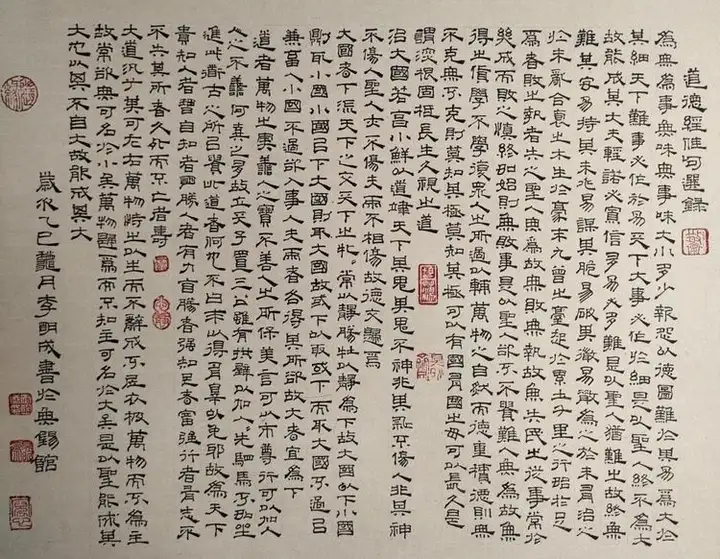 道德經佳句選錄
為無為事無味無事味大小多少報怨以德圖難於其易為大於
其細天下難事必作於易天下大事必作於細是以聖人終不為大
故能成其大夫輕諾必寡信多易必多難是以聖人猶難之故終無
難其安易持其未兆易謀其脆易破其微易散為之於未有治之
於未亂合抱之木生於毫末九層之臺起於累土千里之行始於足
為者敗之執者失之聖人無為故無敗無執故無失民之從事常於
幾成而敗之慎終如始則無敗事是以聖人欲不貴難
得之貨學不學復眾人之所過以輔萬物之自然而德重積德則無
不克無不克則莫知其極莫知其極可以有國有國之母可以長久是
謂深根固柢長生久視之道
治大國若烹小鮮以道蒞天下其鬼其鬼不神非其神不傷人非其神
不傷人聖人亦不傷夫兩不相傷故德交歸焉
大國者下流天下之交天下之牝常以靜勝牡以靜為下故大國以下小國
則取小國小國以下大國則取大國故或下以取或下而取大國不過欲
兼畜人小國不過欲入事人夫兩者各得其所欲故大者宜為下
道者萬物之奧善人之寶不善人之所保美言可以市尊行可以加人
人之不善何棄之有故立天子置三公雖有拱璧以先駟馬不如坐
進此道古之所以貴此道者何也不曰求以得有罪以免耶故為天下
貴知人者智自知者明勝人者有力自勝者強知足者富強行者有志不
不失其所者久死而不亡者壽
大道氾兮其可左右萬物恃之以生而不辭成功不衣被萬物而不為主
故常無欲可名於小矣萬物歸焉而不知主可名於大矣是以聖能成其
大也以其不自大故能成其大
歲次乙巳龍月李明成書於無錫館